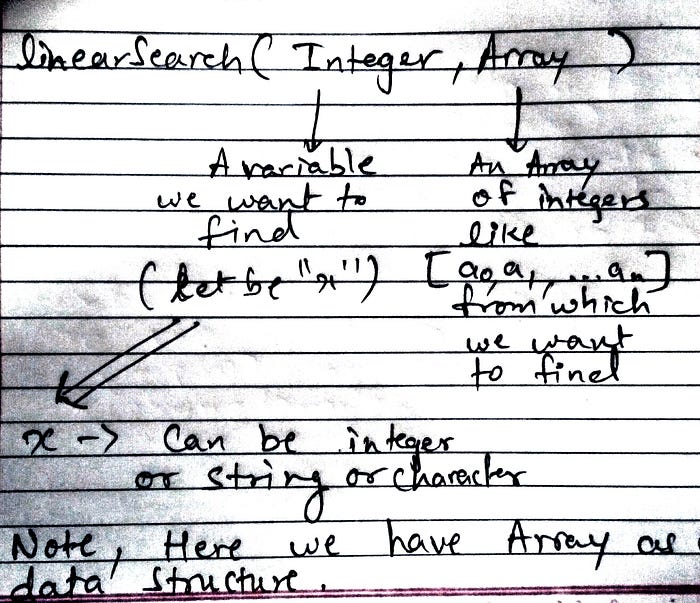 linearSearch ( Integer, Array )
A variable
we want to
find
(let be "x")
An Array
of integers
like
[a0, a1, ... an]
from which
we want
to find
x -> Can be integer
or string or character
Note, Here we have Array as
data structure.